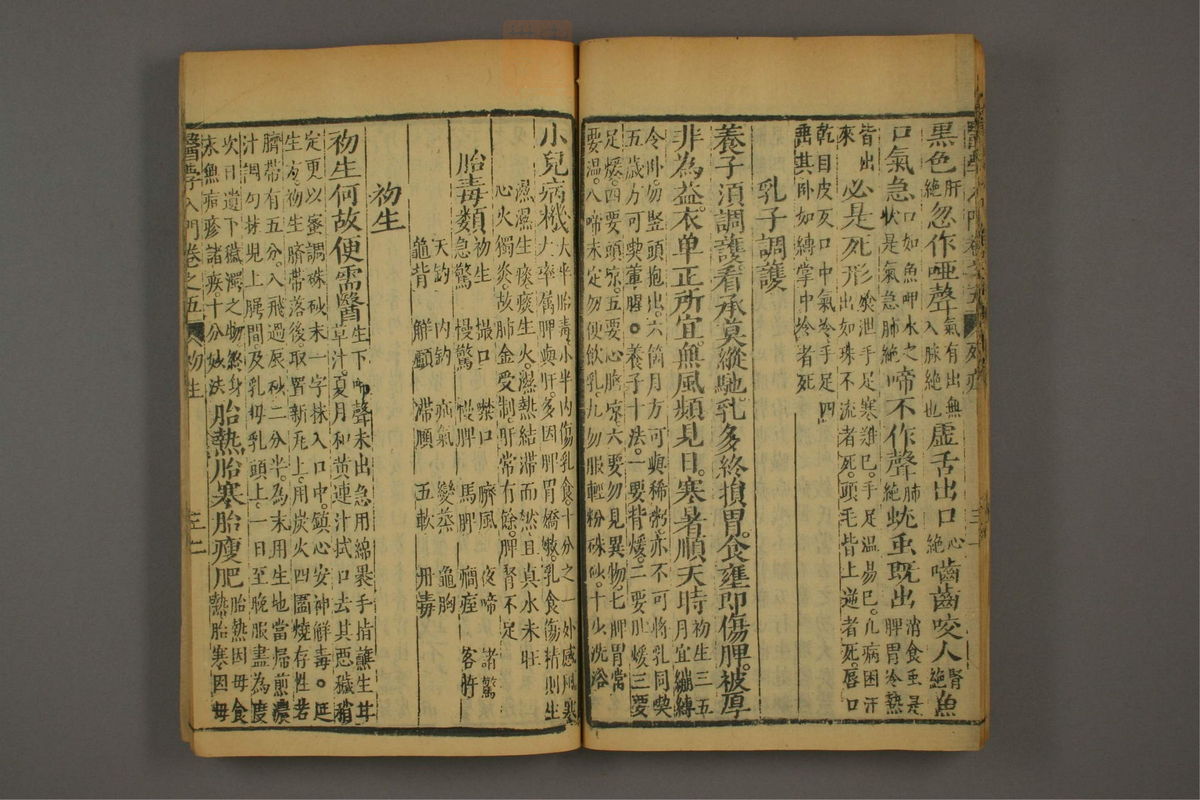 黑色肝絕忽作啞聲氣有出無入脉絕也虛舌出口心絕嚙齒咬人腎絕魚
口氣急口如魚呷水之狀是氣急肺絕啼不作聲肺絕蚘虫既出消食虫是脾胃冷熱
皆出必是死形熒泄手足寒難已手足溫易已凡病困汗出如珠不流者死頭毛皆上逆者死唇口
乾目皮反口中氣冷手足四
垂其卧如縛掌中冷者死
乳子調護
養子須調護看承莫縱馳乳多終損胃食壅即傷脾被厚
非為益衣单正所宜無風頻見日寒暑順天時初生三五月宜綳縛
令卧勿竪頭抱出六箇月方可與稀粥亦不可將乳同喫
五歲方可喫葷腥養子十法一要背煖二要肚煖三要
足煖四要頭凉五要心胷凉六要勿見異物七脾胃常
要溫八啼未定勿便飲乳九勿服輕粉硃砂十少洗浴
小兒病機大半胎毒小半内傷乳食十分之一外感風寒
大率属脾與肝多因脾胃嬌嫩乳食傷精則生
濕濕生痰痰生火濕熱結滯而然且真水未旺
心火獨炎故肺金受制肝常有餘脾腎不足
胎毒類初生 撮口 噤口 臍風 夜啼 諸驚
急驚 慢驚 慢脾 馬脾 癎痓 客忤
天釣 内釣 疝氣 變蒸 龜胸
龜背 解顱 滯頤 五軟 丹毒
初生
初生何故便需醫生下聲未出急用綿裹手指蘸生甘
草汁夏月和黄連汁拭口去其恶穢稍
定更以蜜調硃砂末一字抹入口中鎮心安神解毒延
生方初生臍帶落後取置新瓦上用炭火四圍燒存性若
臍帶有五分入飛過辰砂二分半為末用生地當歸煎濃
汁調勻抹兒上腭間及乳母乳頭上一日至晚服盡為度
次日遺下穢濁之物終身
永無疮疹諸疾十分妙法胎熱胎寒胎瘦肥胎熱因母食熱胎寒因母
醫學入門卷之五 初生 三二